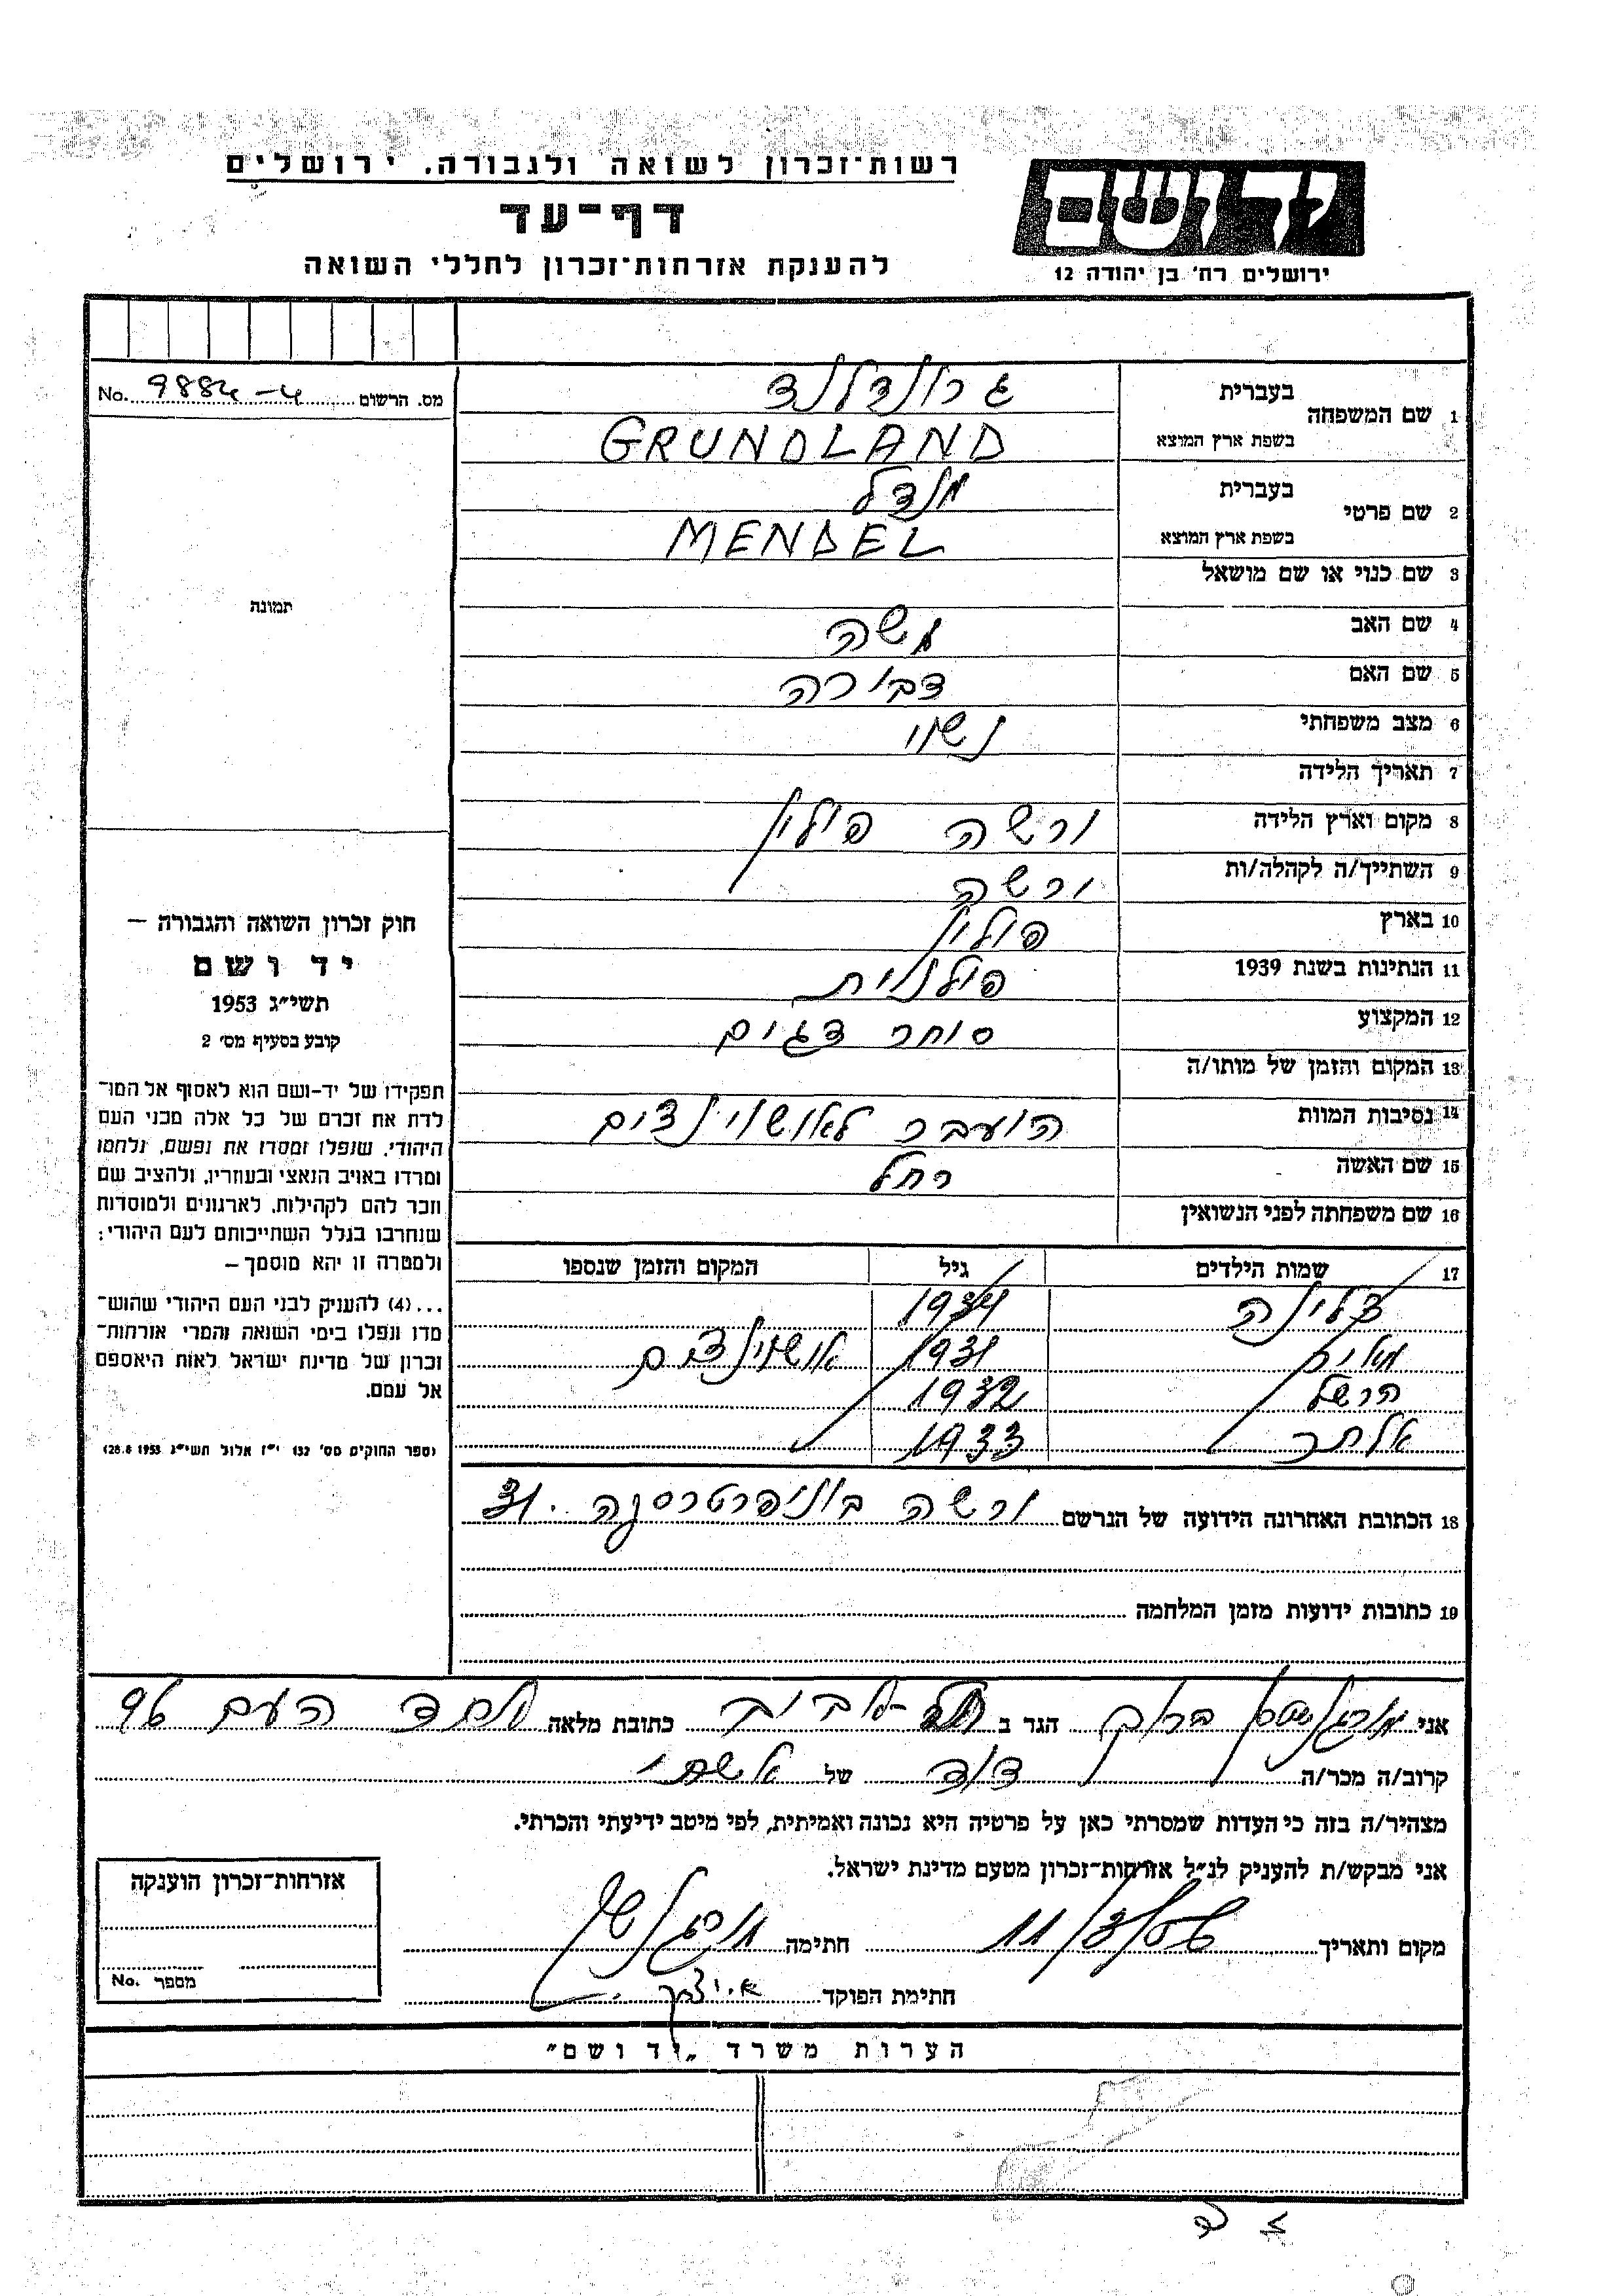 רשות־זכרון לשואה ולגבורה. ירושלים
דף־עד
להענקת אזרחות־זכרון לחללי השואה
יד ושם
ירושלים רח' בן יהודה 12
מס. הרשום No. 9884-4
1 שם המשפחה
בעברית גרונדלנד
בשפת ארץ המוצא GRUNDLAND
2 שם פרטי
בעברית מנדל
בשפת ארץ המוצא MENDEL
3 שם כנוי או שם מושאל
4 שם האב משה
5 שם האם דבורה
6 מצב משפחתי נשוי
7 תאריך הלידה
8 מקום וארץ הלידה ורשה פולין
9 השתייך/ה לקהלה/ות ורשה
10 בארץ פולין
11 הנתינות בשנת 1939 פולנית
12 המקצוע סוחר דגים
13 המקום והזמן של מותו/ה
14 נסיבות המוות הועבר לאושוינצים
15 שם האשה רחל
16 שם משפחתה לפני הנשואין
17 שמות הילדים גיל המקום והזמן שנספו
1934
1931
הרשל 1932
אלתר 1933
18 הכתובת האחרונה הידועה של הנרשם ורשה בוניפרטרסקה 31
19 כתובות ידועות מזמן המלחמה
תמונה
חוק זכרון השואה והגבורה –
יד ושם
תשי"ג 1953
קובע בסעיף מס' 2
תפקידו של יד-ושם הוא לאסוף אל המו־
לדת את זכרם של כל אלה מבני העם
היהודי, שנפלו ומסרו את נפשם, נלחמו
ומרדו באויב הנאצי ובעוזריו, ולהציב שם
וזכר להם לקהילות, לארגונים ולמוסדות
שנחרבו בגלל השתייכותם לעם היהודי;
ולמטרה זו יהא מוסמך –
...(4) להעניק לבני העם היהודי שהוש־
מדו ונפלו בימי השואה והמרי אזרחות־
זכרון של מדינת ישראל לאות היאספם
אל עמם.
(ספר החוקים מס' 132 י"ז אלול תשי"ג 28.8.1953)
אני ברוך הגר ב תל-אביב כתובת מלאה אחד העם 96
קרוב/ה מכר/ה דוד של אשתי
מצהיר/ה בזה כי העדות שמסרתי כאן על פרטיה היא נכונה ואמיתית, לפי מיטב ידיעתי והכרתי.
אני מבקש/ת להעניק לנ"ל אזרחות־זכרון מטעם מדינת ישראל.
מקום ותאריך 11/3/56 חתימה
חתימת הפוקד
אזרחות־זכרון הוענקה
מספר No.
הערות משרד „יד ושם"